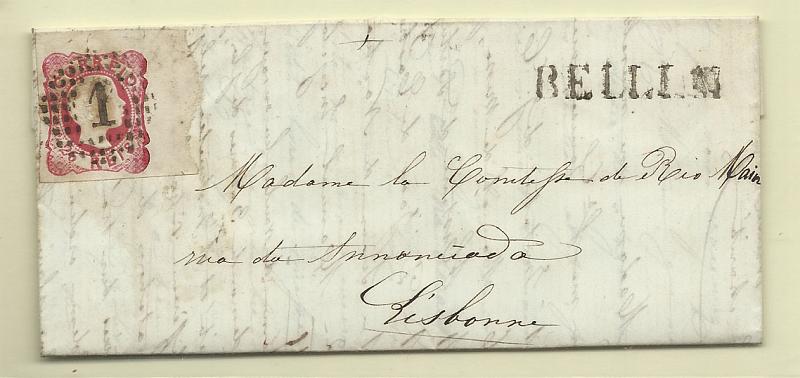 CORREIO
1
BELLEM
Madame la Comtesse de Rio Maior
rua da Annonciada
Lisbonne